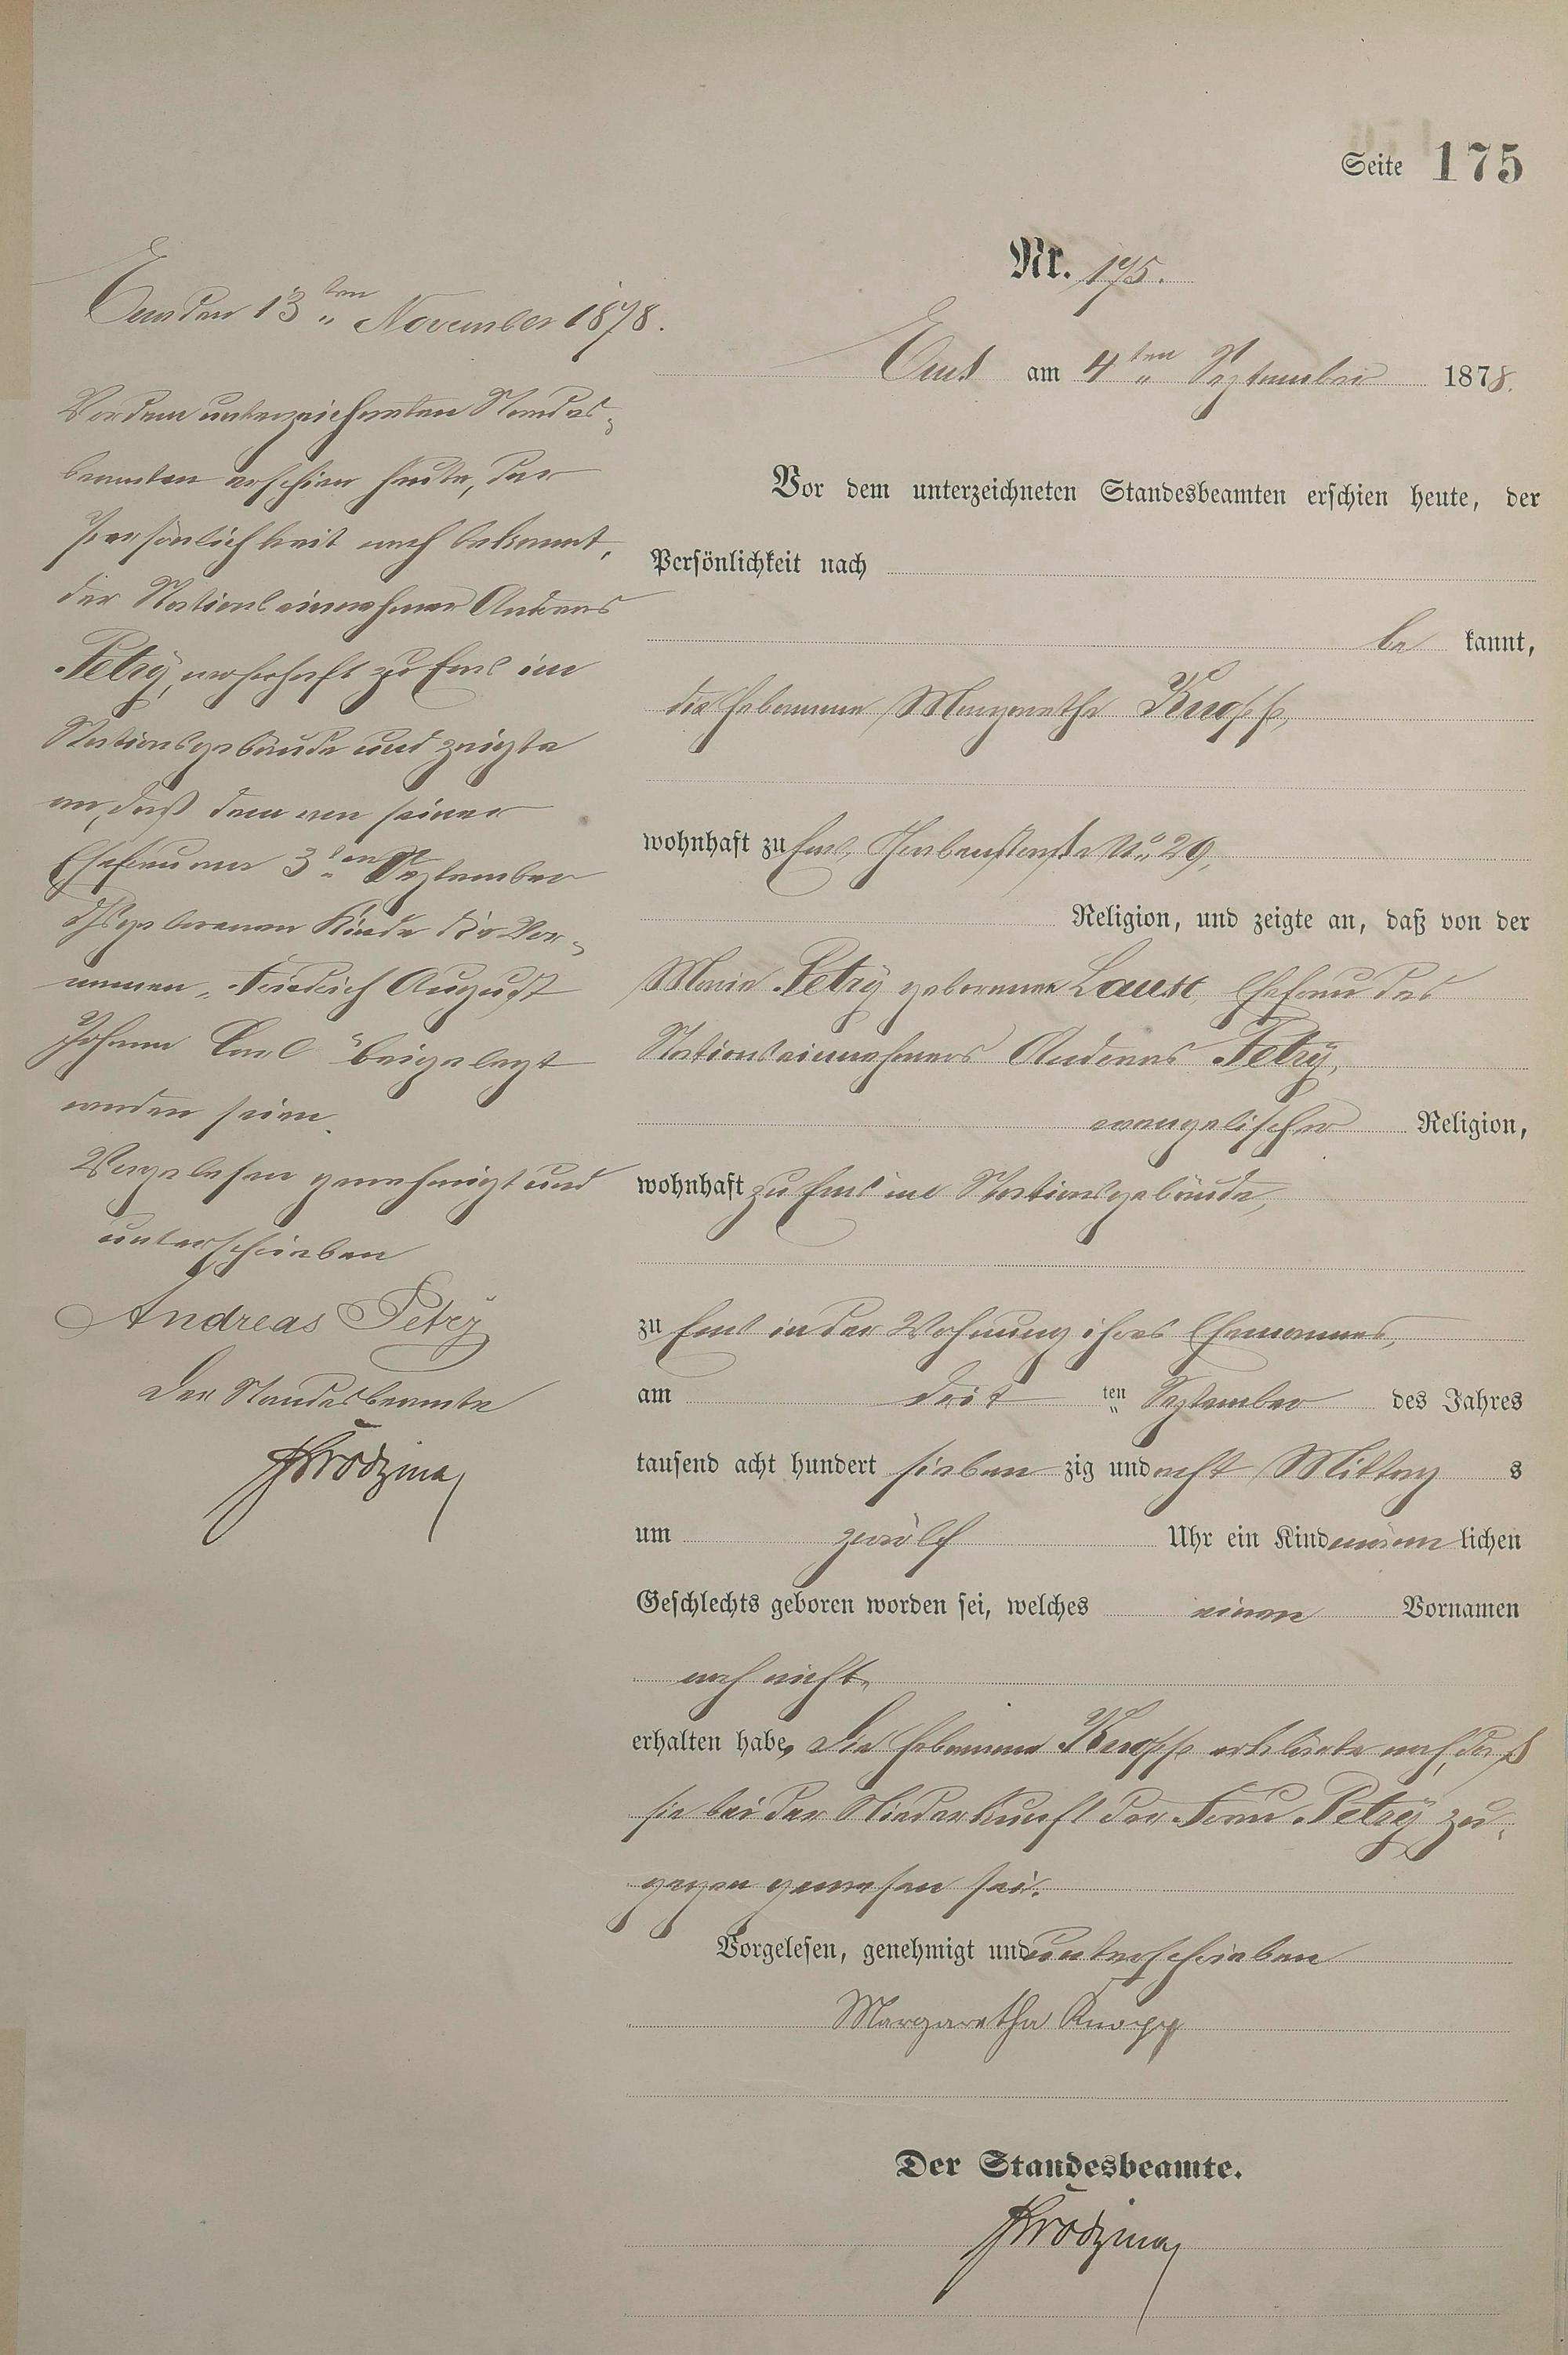 Seite 175
Nr. 175.
Ems am 4ten September 1878.
Vor dem unterzeichneten Standesbeamten erschien heute, der
Persönlichkeit nach
be kannt,
die Hebamme Margarethe Knopp,
wohnhaft zu Ems, No 29,
Religion, und zeigte an, daß von der
Marie Petry geborenen Ehefrau des
Stationseinnehmers Andreas Petry,
evangelischer Religion,
wohnhaft zu Ems im Stationsgebäude,
zu Ems in der Wohnung ihres Ehemannes,
am drit ten September des Jahres
tausend acht hundert sieben zig und acht Mittag s
um zwölf Uhr ein Kind männ lichen
Geschlechts geboren worden sei, welches einen Vornamen
noch nicht
erhalten habe, die Hebamme Knopp erklärte noch, daß
sie bei der Niederkunft der Frau Petry zu-
gegen gewesen sei.
Vorgelesen, genehmigt und unterschrieben
Margaretha Knopp
Der Standesbeamte.
Ems den 13ten November 1878.
Vor dem unterzeichneten Standes-
beamten erschien heute, der
Persönlichkeit nach bekannt,
der Stationseinnehmer Andreas
Petry, wohnhaft zu Ems im
Stationsgebäude und zeigte
an, daß dem von seiner
Ehefrau am 3ten September
geborenen Kinde die Vor-
namen "Friedrich August
Johann Carl" beigelegt
worden seien.
Vorgelesen genehmigt und
unterschrieben
Andreas Petry
Der Standesbeamte